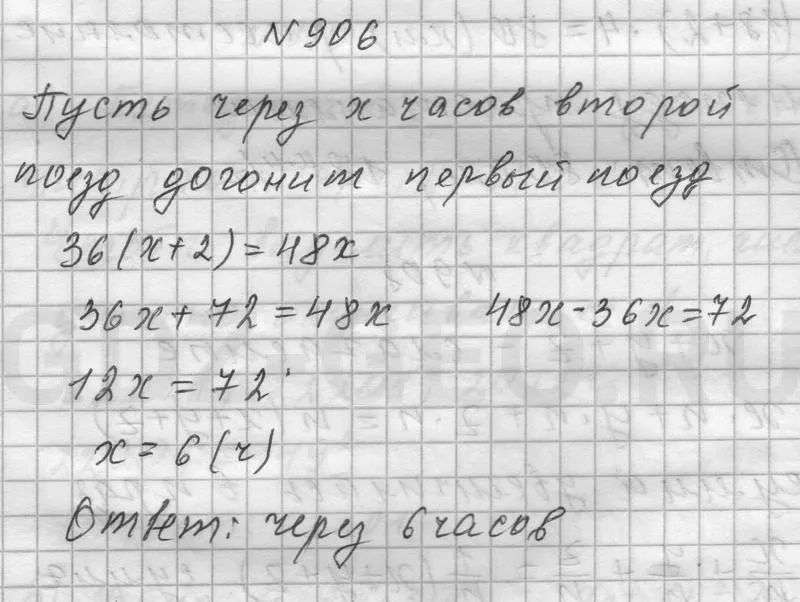 N 906
Пусть через x часов второй
поезд догонит первый поезд
36(x+2)=48x
36x+72=48x 48x-36x=72
12x=72
x=6(ч)
Ответ: через 6 часов